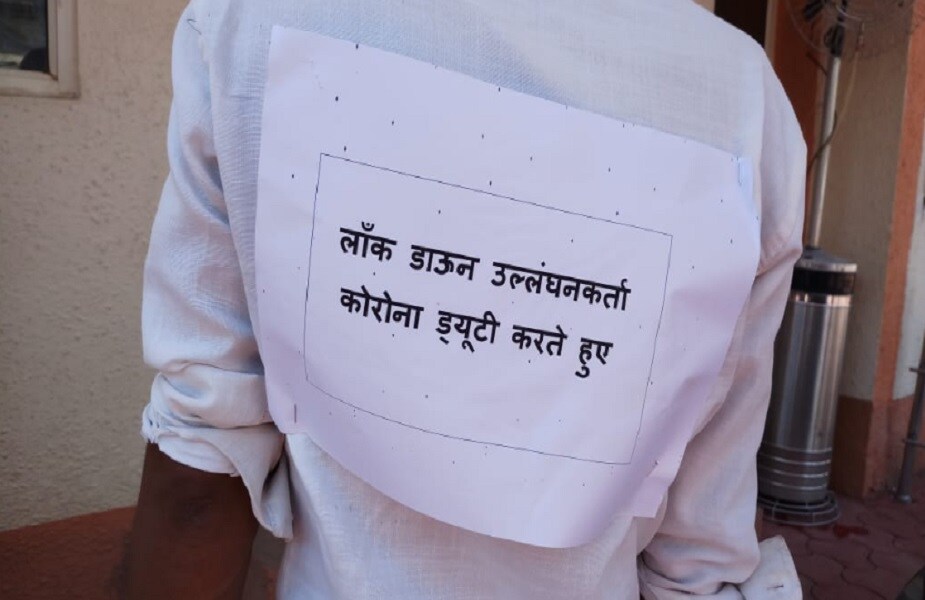 लॉंक डाऊन उल्लंघनकर्ता
कोरोना ड्यूटी करते हुए